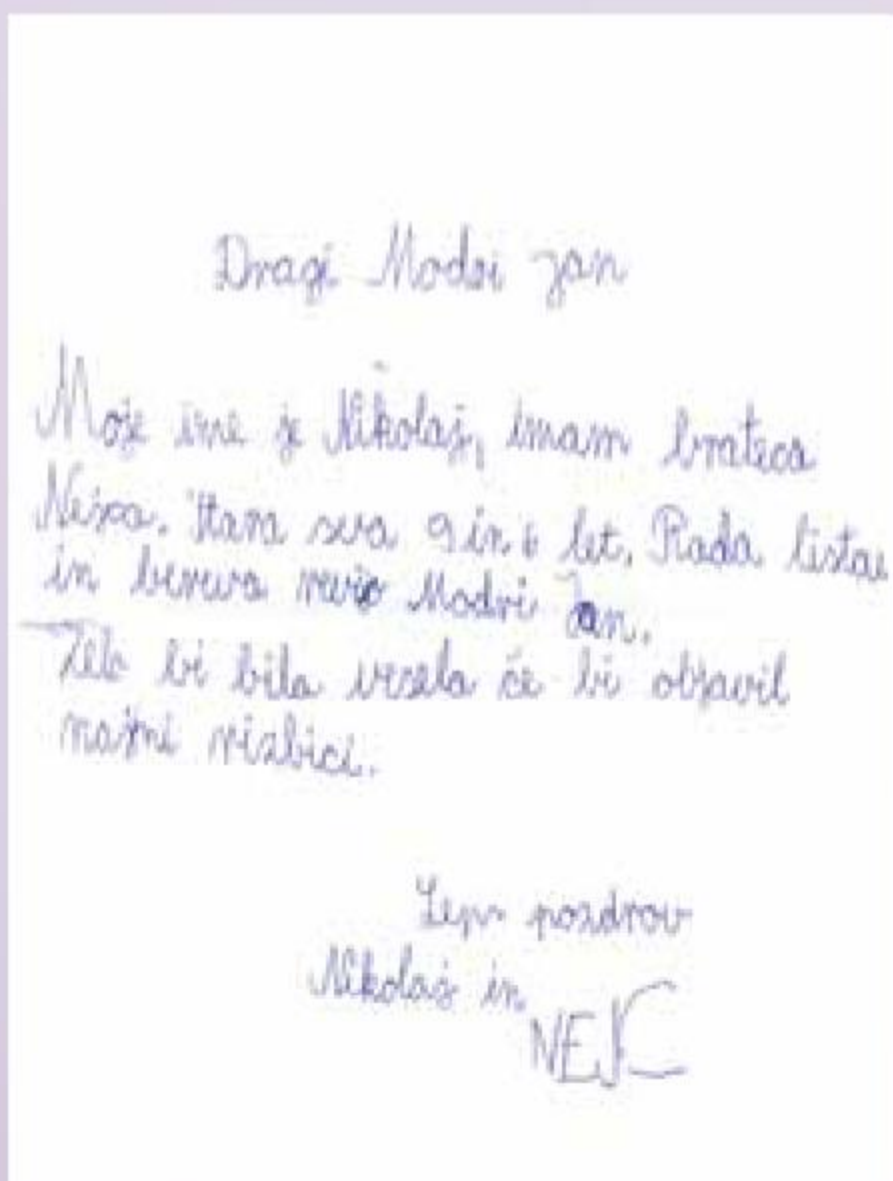 Dragi Modri Jan
Moje ime je Nikolaj, imam brateca
Nejca. Stara sva 9 in 6 let. Rada listava
in bereva revijo Modri Jan.
Zelo bi bila vesela če bi objavil
najini risbici.
Lep pozdrav
Nikolaj in
NEJC